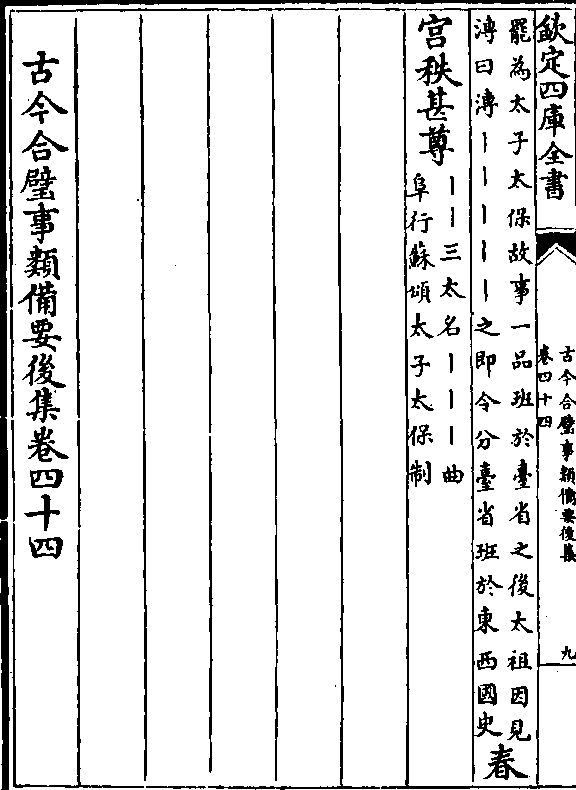 欽定四庫全書
古今合璧事類備要後集
卷四十四
九
罷為太子太保故事一品班於臺省之後太祖因見
溥曰溥丨丨丨丨丨之即令分臺省班於東西國史
春
宫秩甚尊
丨丨三太名丨丨丨曲
阜行蘇頌太子太保制
古今合璧事類備要後集卷四十四